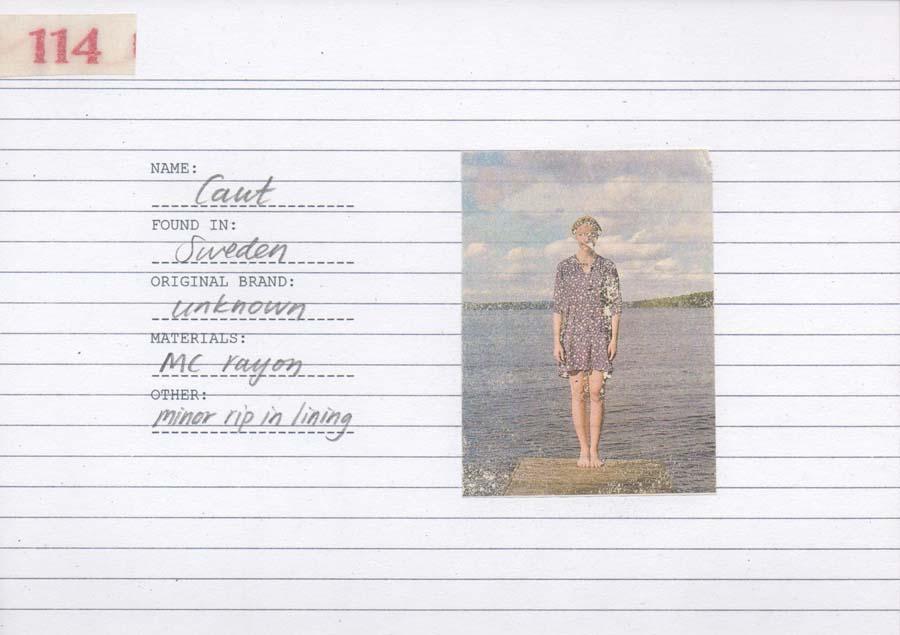 114
NAME:
Caut
FOUND IN:
Sweden
ORIGINAL BRAND:
unknown
MATERIALS:
MC rayon
OTHER:
minor rip in lining